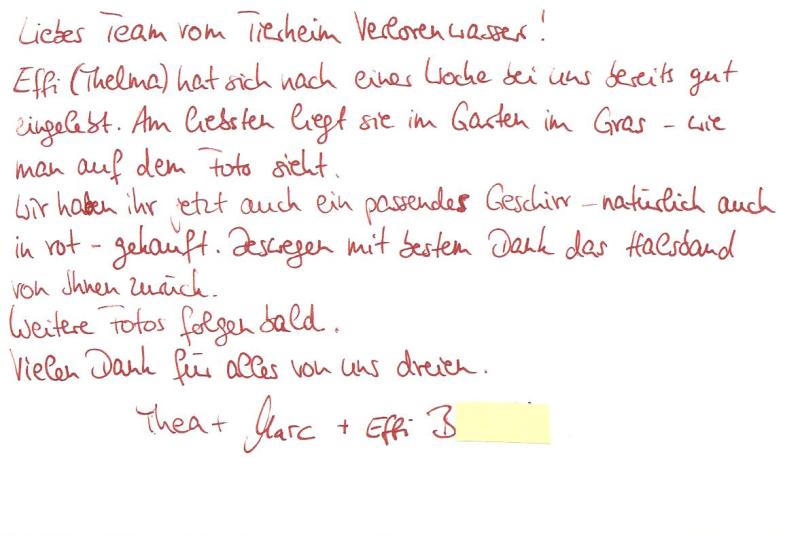 Liebes Team vom Tierheim Verlorenwasser!
Effi (Thelma) hat sich nach einer Woche bei uns bereits gut
eingelebt. Am liebsten liegt sie im Garten im Gras – wie
man auf dem Foto sieht.
Wir haben ihr jetzt auch ein passendes Geschirr – natürlich auch
in rot – gekauft. Deswegen mit bestem Dank das Halsband
von Ihnen zurück.
Weitere Fotos folgen bald.
Vielen Dank für alles von uns dreien.
Thea + Marc + Effi B